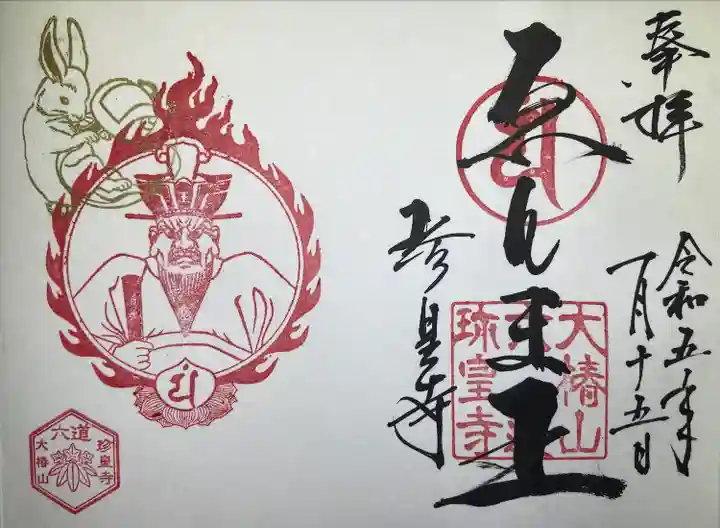 奉拝
令和五年
一月十五日
えんま王
珍皇寺
大椿山
六道
珍皇寺
王
六道
珍皇寺
大椿山